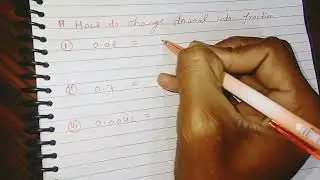 # How to change decimal into fraction
(i) 0.08 =
(ii) 0.7 =
(iii) 0.0042 =